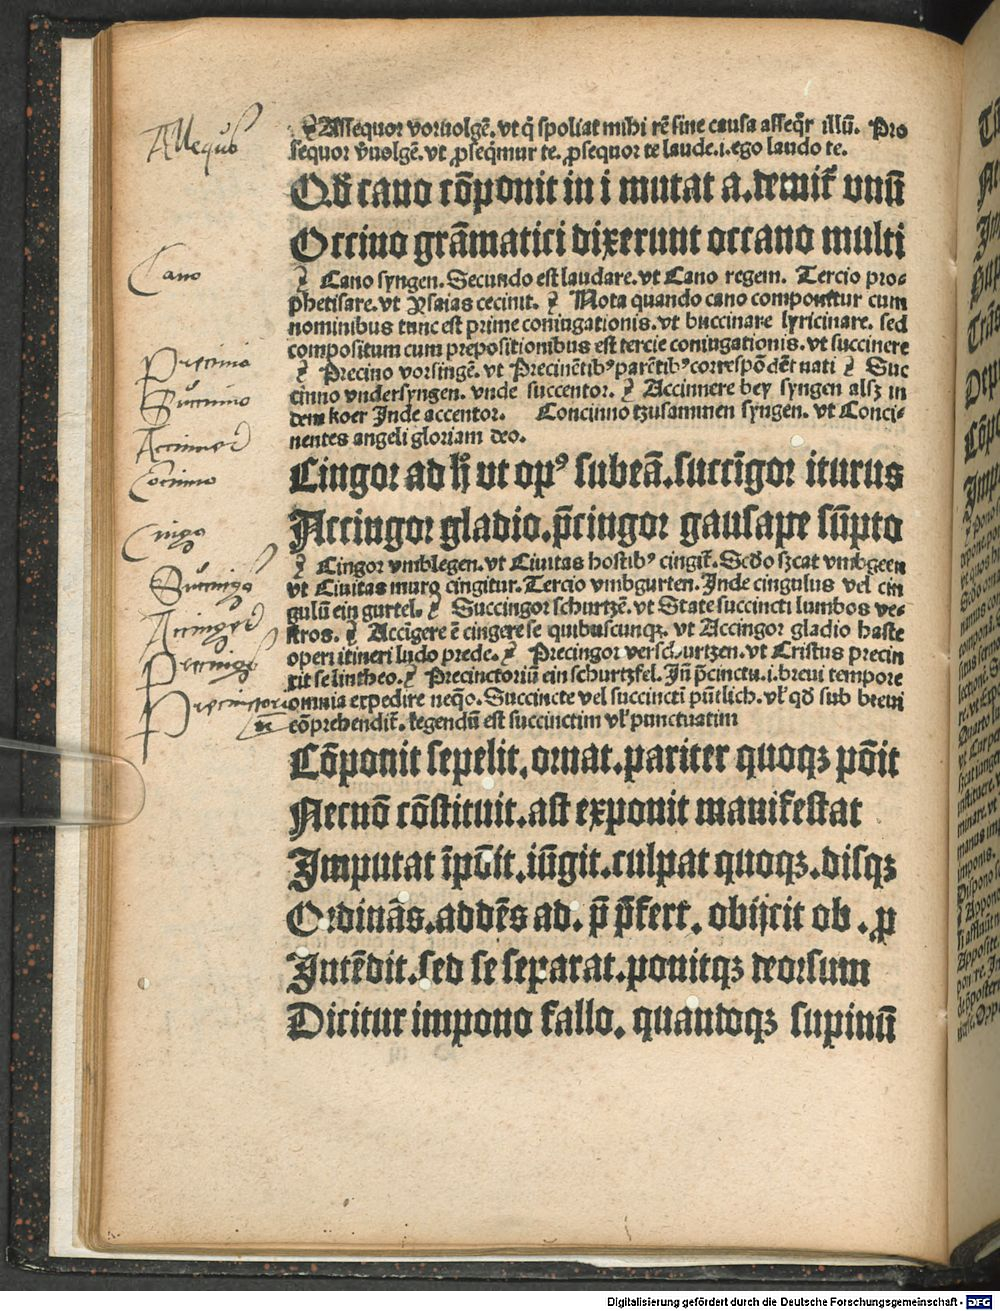 Assequor
⁊ Assequor voruolgē. vt q̄ spoliat mihi rē sine causa asseqr̄ illū. Pro
sequor v̄uolgē. vt ꝓseq̄mur te. ꝓsequor te laude. i. ego laudo te.
Qd̄ cano cōponit in i mutat a. demit᷑ vnū
Occino grāmatici dixerunt occano multi
Cano
⁊ Cano syngen. Secundo est laudare. vt Cano regem. Tercio pro⸗
phetisare. vt Ysaias cecinit. ⁊ Nota quando cano componitur cum
nominibus tunc est prime coniugationis. vt buccinare lyricinare. sed
compositum cum prepositionibus est tercie coniugationis. vt succinere
Precino
⁊ Precino vorsingē. vt Precinētibꝰ parētibꝰ correspōdēt nati ⁊ Suc
Succino
cinno vndersyngen. vnde succentor. ⁊ Accinnere bey syngen alsz in
dem koer Inde accentor. Concinno tzusammen syngen. vt Conci⸗
Accinnere
nentes angeli gloriam deo.
Cocinno
Cingor ad h̄ ut opꝰ subeā. succīgor iturus
Accingor gladio. p̄cingor gausape sūpto
Cingo
⁊ Cingor vmblegen. vt Ciuitas hostibꝰ cingit᷑. Scd̄o szcat vmbgeen
Succingor
vt Ciuitas muro cingitur. Tercio vmbgurten. Inde cingulus vel cin
gulū ein gurtel. ⁊ Succingor schurtzē. vt State succincti lumbos ve⸗
Accingere
stros. ⁊ Accīgere ē cingere se quibuscunqꝫ. vt Accingor gladio haste
Precingor
operi itineri ludo prede. ⁊ Precingor verschurtzen. vt Cristus precin
xit se lintheo. ⁊ Precinctoriū ein schurtzfel. Jn̄ p̄cinctu. i. breui tempore
Precinctoriū
omnia expedire neqo. Succincte vel succincti pūtlich. vl̓ qd̄ sub breui
cōprehendit᷑. legendū est succinctim vl̓ punctuatim
Cōponit sepelit. ornat. pariter quoqꝫ pōit
Necnō cōstituit. ast exponit manifestat
Imputat īpōit. iūgit. culpat quoqꝫ. disqꝫ
Ordināς. addēs ad. p̄ p̄fert. obijcit ob. ꝓ
Intēdit. sed se separat. ponitqꝫ deorsum
Dicitur impono fallo. quandoqꝫ supinū
Digitalisierung gefördert durch die Deutsche Forschungsgemeinschaft - DFG